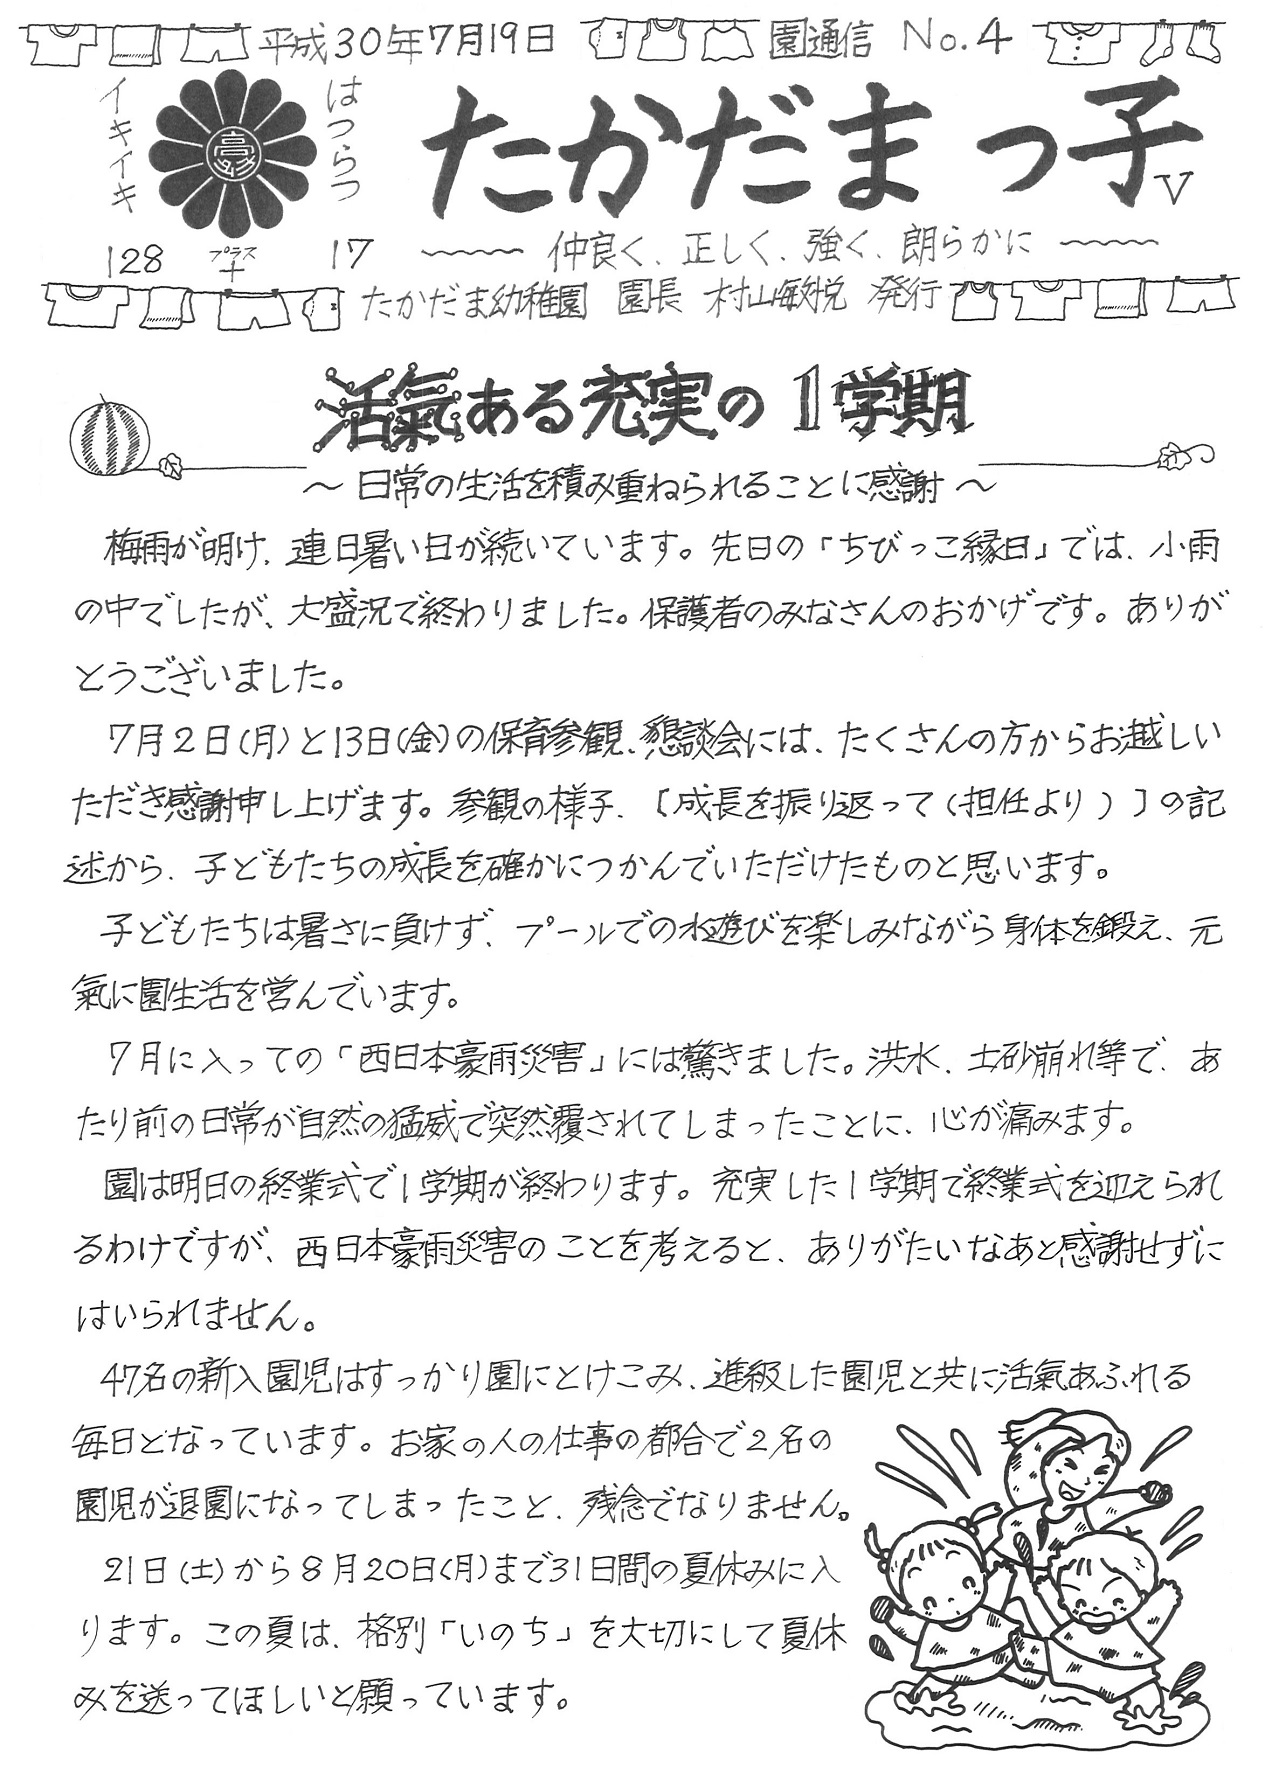 平成30年7月19日 園通信 No.4
イキイキ はつらつ
たかだまっ子 V
128 プラス + 17
仲良く、正しく、強く、朗らかに
たかだま幼稚園 園長 村山敏悦 発行
活氣ある充実の1学期
～日常の生活を積み重ねられることに感謝～
梅雨が明け、連日暑い日が続いています。先日の「ちびっこ縁日」では、小雨
の中でしたが、大盛況で終わりました。保護者のみなさんのおかげです。ありが
とうございました。
7月2日(月)と13日(金)の保育参観、懇談会には、たくさんの方からお越しい
ただき感謝申し上げます。参観の様子、〔成長を振り返って(担任より)〕の記
述から、子どもたちの成長を確かにつかんでいただけたものと思います。
子どもたちは暑さに負けず、プールでの水遊びを楽しみながら身体を鍛え、元
氣に園生活を営んでいます。
7月に入っての「西日本豪雨災害」には驚きました。洪水、土砂崩れ等で、あ
たり前の日常が自然の猛威で突然覆されてしまったことに、心が痛みます。
園は明日の終業式で1学期が終わります。充実した1学期で終業式を迎えられ
るわけですが、西日本豪雨災害のことを考えると、ありがたいなあと感謝せずに
はいられません。
47名の新入園児はすっかり園にとけこみ、進級した園児と共に活氣あふれる
毎日となっています。お家の人の仕事の都合で2名の
園児が退園になってしまったこと、残念でなりません。
21日(土)から8月20日(月)まで31日間の夏休みに入
ります。この夏は、格別「いのち」を大切にして夏休
みを送ってほしいと願っています。